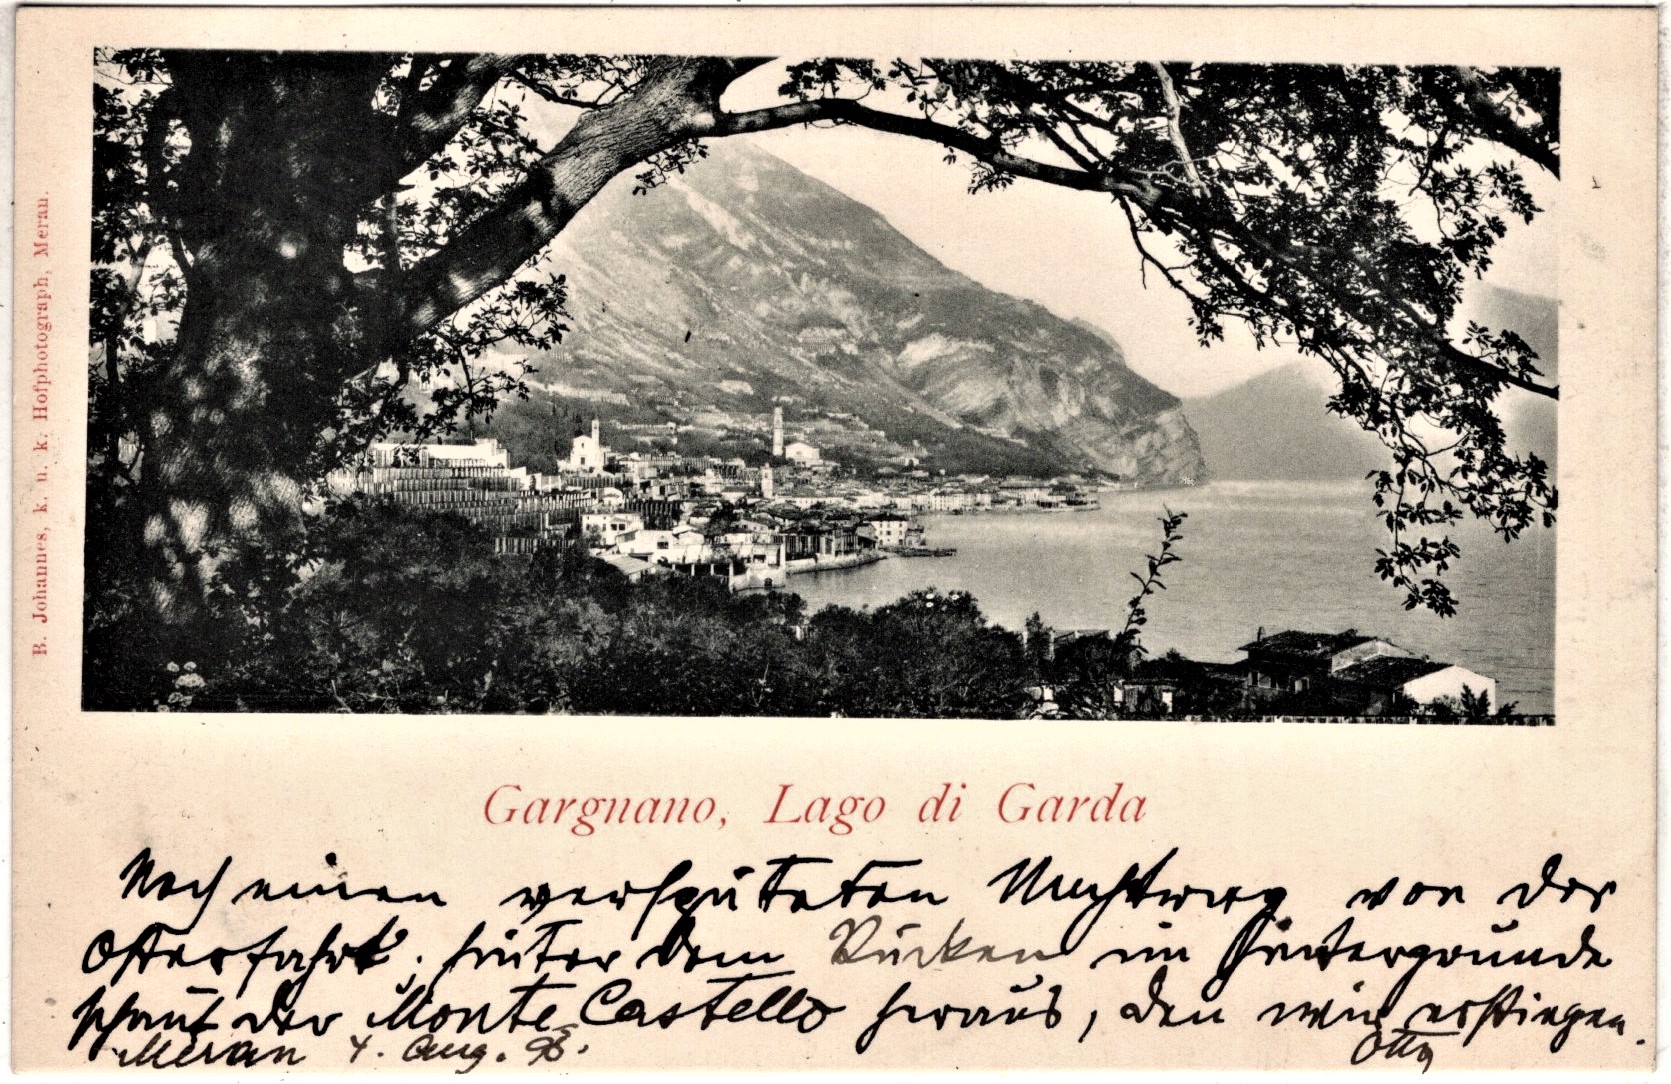 B. Johannes, k. u. k. Hofphotograph, Meran.
Gargnano, Lago di Garda
Noch einen verspäteten von der
Osterfahrt; hinter dem Rücken im Hintergrunde
schaut der Monte Castello heraus, den wir erstiegen.
Meran 4. Aug. 98.
Otto